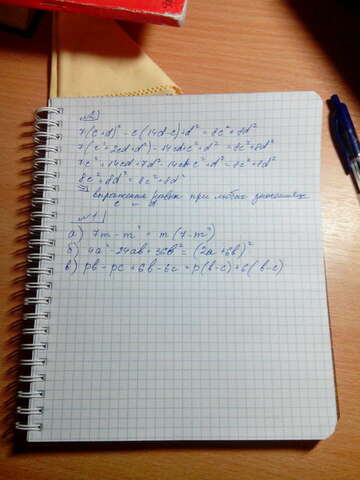 №2)
7(c+d)² - c(14d-c)+d² = 8c²+8d²
7(c²+2cd+d²) - 14cd+c²+d² = 8c²+8d²
7c²+14cd+7d²-14cd+c²+d² = 8c²+8d²
8c²+8d² = 8c²+8d²
=> выражения равны при любых значениях
c и d
№1)
а) 7m - m² = m(7-m)
б) 4a²-24ab+36b² = (2a+6b)²
в) pb-pc+6b-6c = p(b-c)+6(b-c)